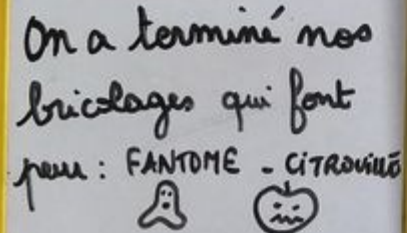 On a terminé nos
bricolages qui font
peur : FANTOME - CiTROUiLLE